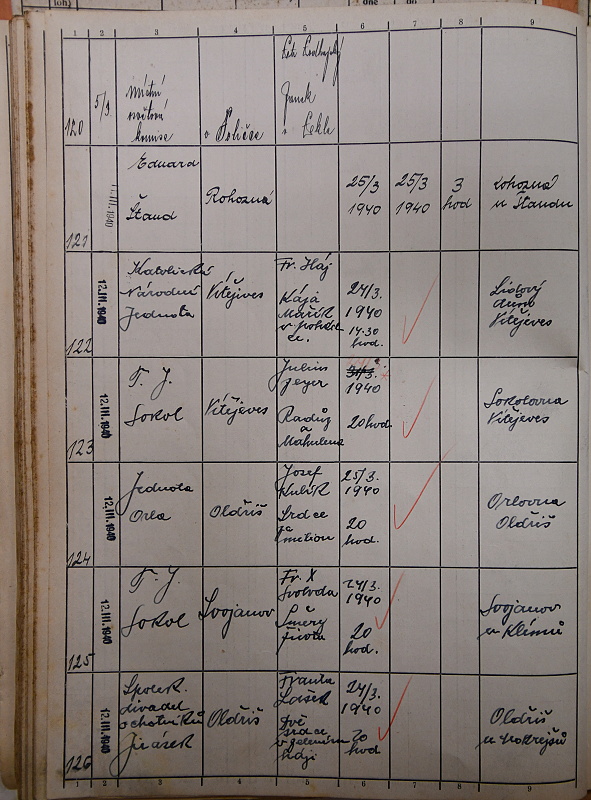 1 2 3 4 5 6 7 8 9
120
5/3
Místní
osvětová
komise
v Poličce
Janek
121
12.III.1940
Eduard
Štaud
Rohozná
25/3
1940
25/3
1940
3
hod
Rohozná
u Štaudu
122
12.III.1940
Katolická
Národní
Jednota
Vítějeves
Fr. Háj
Kája
Mařík
v pohád-
ce.
24/3.
1940
14.30
hod.
Lidový
dům
Vítějeves
123
12.III.1940
T. J.
Sokol
Vítějeves
Julius
Zeyer
Radúz
a
Mahulena
31/3.
1940
20 hod.
Sokolovna
Vítějeves
124
12.III.1940
Jednota
Orla
Oldřiš
Josef
Kubík
Srdce
za
milion
25/3.
1940
20
hod.
Orlovna
Oldřiš
125
12.III.1940
T. J.
Sokol
Svojanov
Fr. X
Svoboda
Směry
života
24/3.
1940
20
hod.
Svojanov
u Klímů
126
12.III.1940
Spolek
divadel
ochotníků
Jirásek
Oldřiš
Franta
Lašek
Dvě
srdce
v zeleném
háji
24/3.
1940
20
hod
Oldřiš
1 2 3 4 5 6 7 8 9